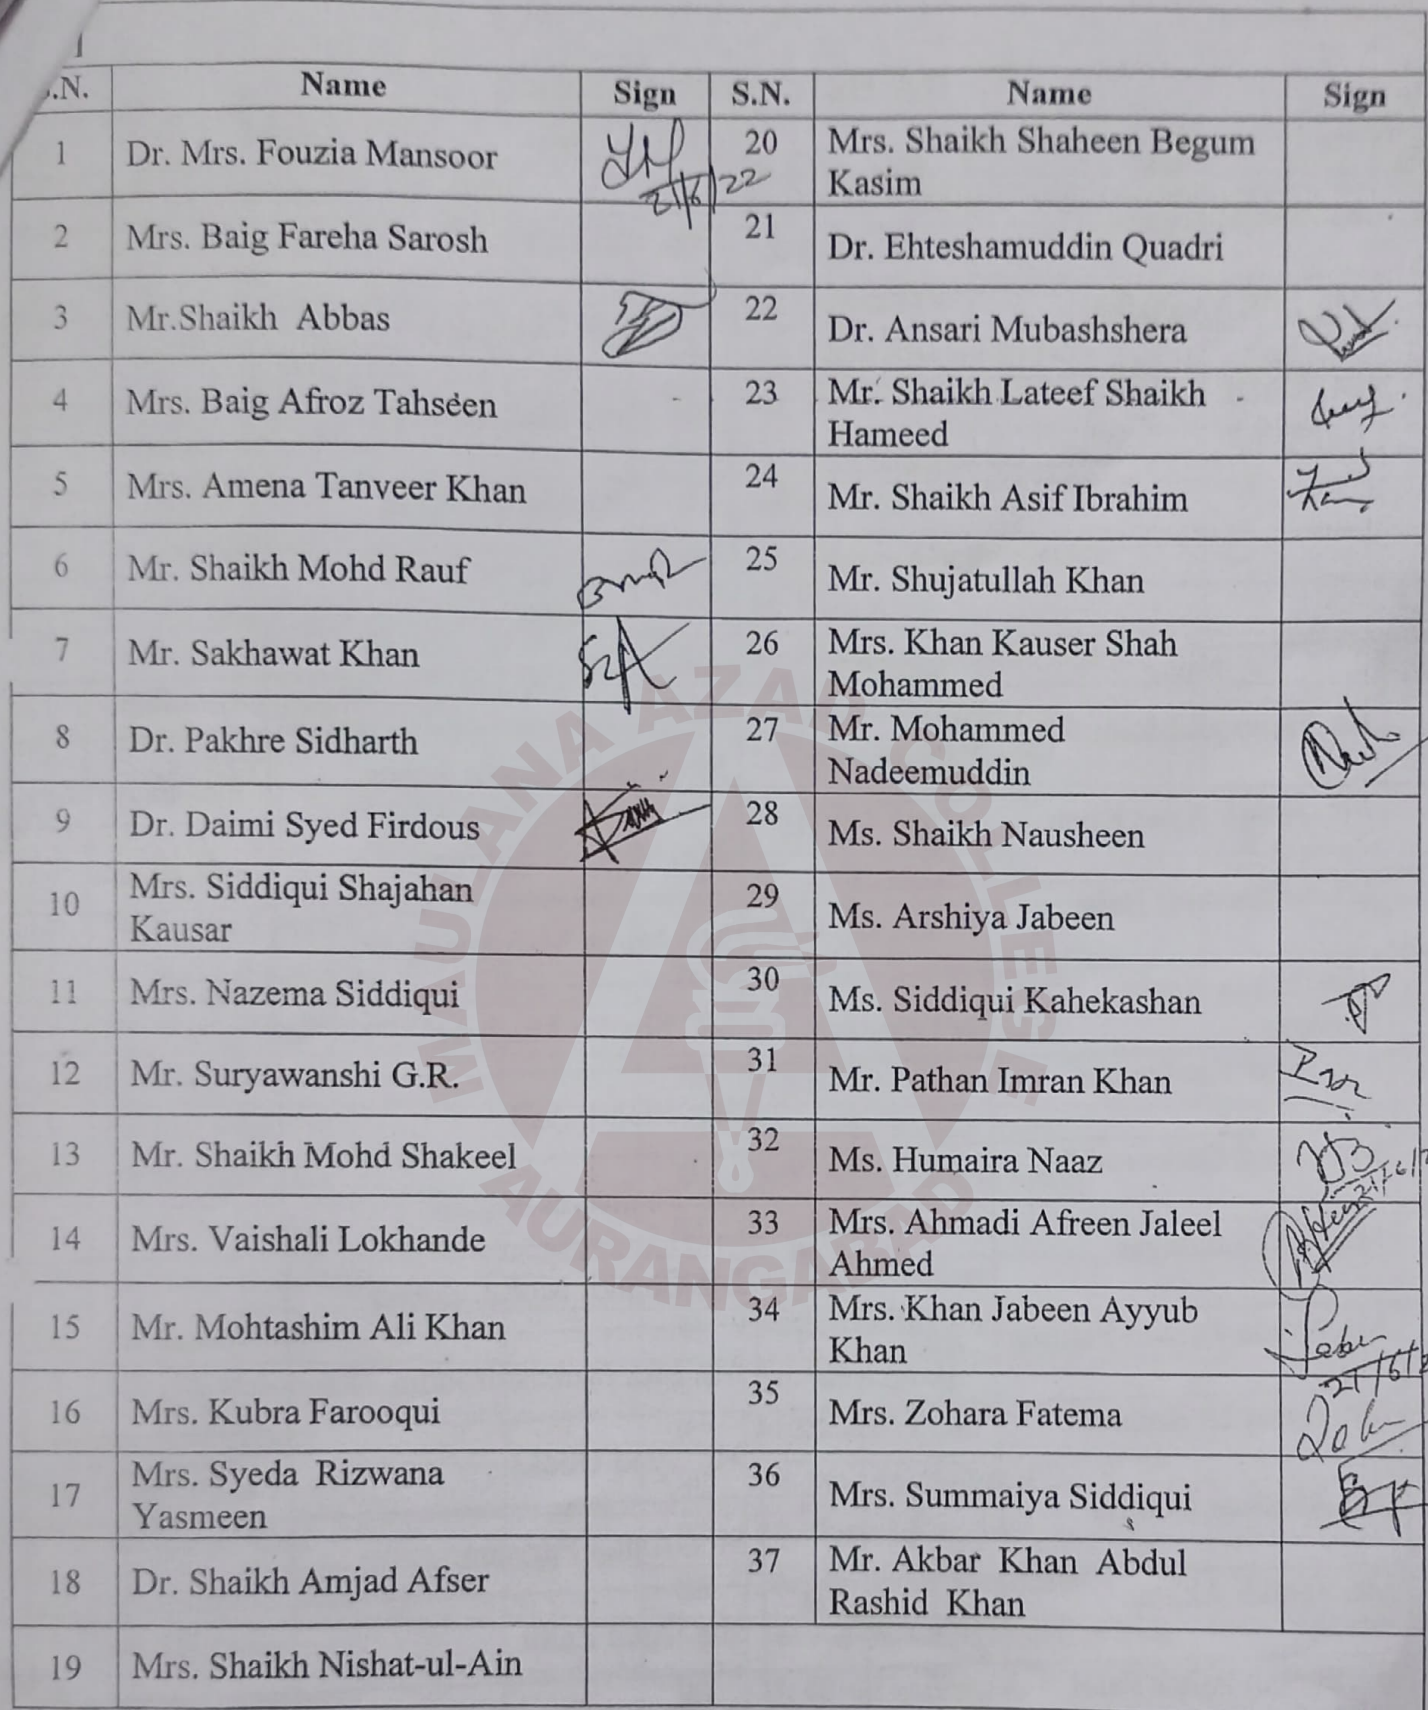 S.N. Name Sign S.N. Name Sign
1 Dr. Mrs. Fouzia Mansoor 21/6/22 20 Mrs. Shaikh Shaheen Begum
Kasim
2 Mrs. Baig Fareha Sarosh 21 Dr. Ehteshamuddin Quadri
3 Mr.Shaikh Abbas 22 Dr. Ansari Mubashshera
4 Mrs. Baig Afroz Tahseen 23 Mr. Shaikh Lateef Shaikh
Hameed
5 Mrs. Amena Tanveer Khan 24 Mr. Shaikh Asif Ibrahim
6 Mr. Shaikh Mohd Rauf 25 Mr. Shujatullah Khan
7 Mr. Sakhawat Khan 26 Mrs. Khan Kauser Shah
Mohammed
8 Dr. Pakhre Sidharth 27 Mr. Mohammed
Nadeemuddin
9 Dr. Daimi Syed Firdous 28 Ms. Shaikh Nausheen
10 Mrs. Siddiqui Shajahan
Kausar
29 Ms. Arshiya Jabeen
11 Mrs. Nazema Siddiqui 30 Ms. Siddiqui Kahekashan
12 Mr. Suryawanshi G.R. 31 Mr. Pathan Imran Khan
13 Mr. Shaikh Mohd Shakeel 32 Ms. Humaira Naaz
14 Mrs. Vaishali Lokhande 33 Mrs. Ahmadi Afreen Jaleel
Ahmed
15 Mr. Mohtashim Ali Khan 34 Mrs. Khan Jabeen Ayyub
Khan
16 Mrs. Kubra Farooqui 35 Mrs. Zohara Fatema
17 Mrs. Syeda Rizwana
Yasmeen
36 Mrs. Summaiya Siddiqui
18 Dr. Shaikh Amjad Afser 37 Mr. Akbar Khan Abdul
Rashid Khan
19 Mrs. Shaikh Nishat-ul-Ain
MAULANA AZAD COLLEGE
AURANGABAD